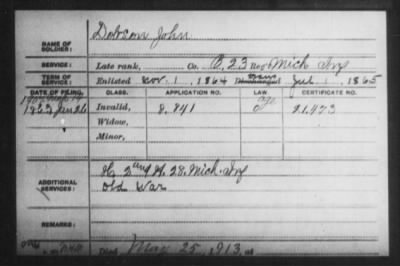 Dobson John
NAME OF SOLDIER:
SERVICE: Late rank, Co. B, 23 Reg't Mich Inf
TERM OF SERVICE: Enlisted Nov. 1, 1864 Jul. 1, 1865
DATE OF FILING. CLASS. APPLICATION NO. LAW. CERTIFICATE NO.
1863 Jan 26 Invalid, 8.841 age 21.473
Widow,
Minor,
ADDITIONAL SERVICES: H, 2 and H. 28. Mich. Inf
Old War
REMARKS:
Died May 25, 1913, at